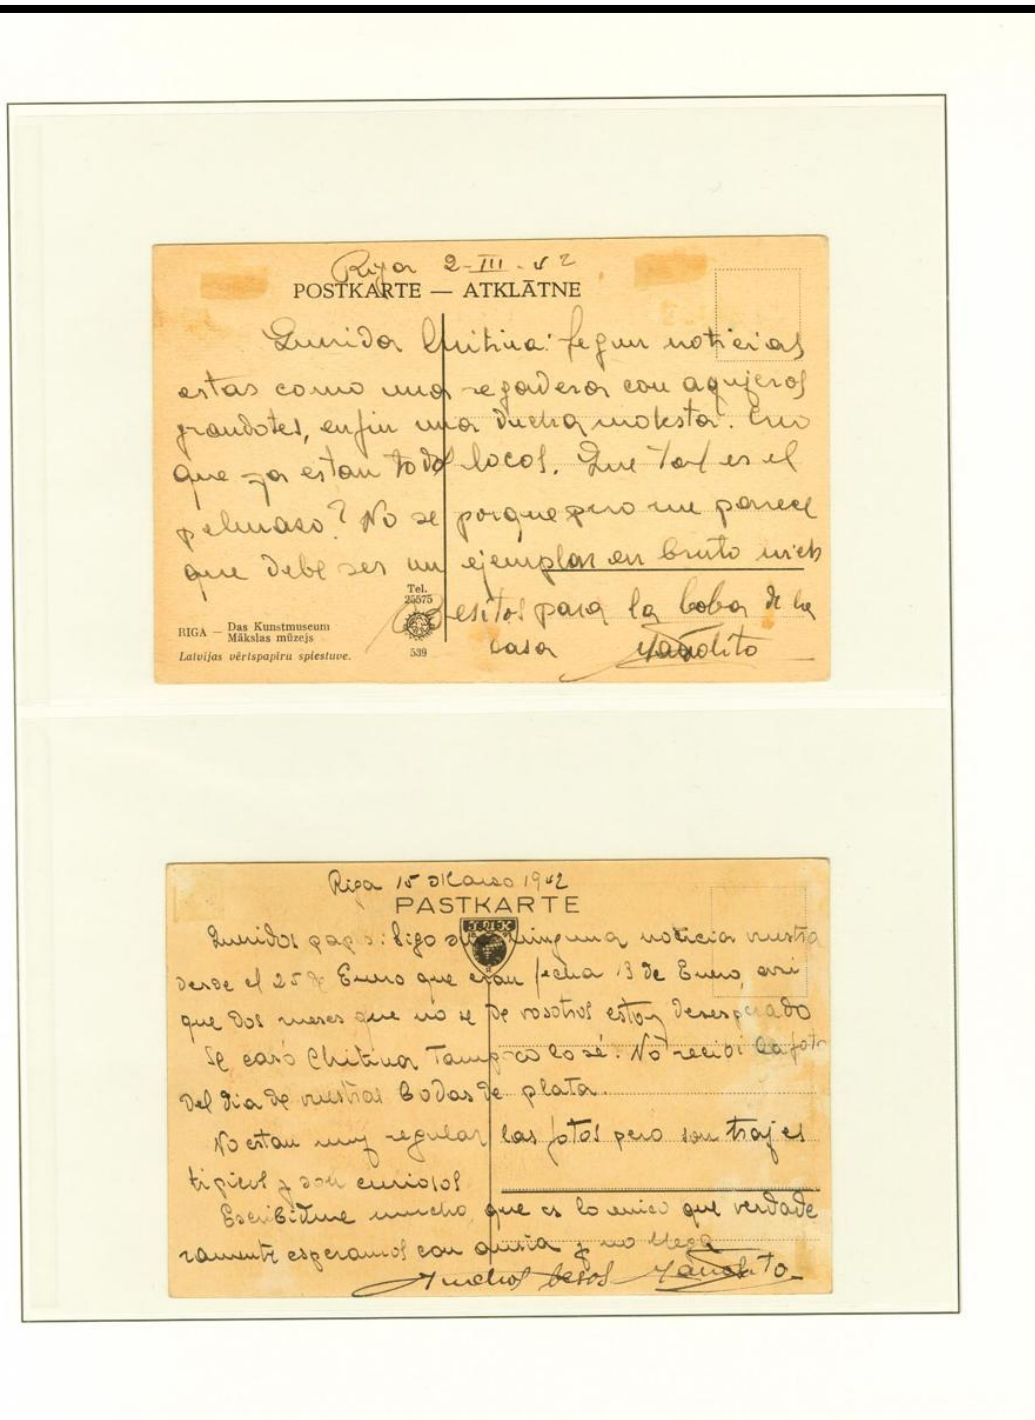 Riga 2-III-42
POSTKARTE — ATKLĀTNE
Querida Chitina: Segun noticias
estas como una regadera con agujeros
grandotes, enfin una ducha molesta. Creo
que ya estan todos locos. Que tal es el
pelmaso? No se porque pero me parece
que debe ser un ejemplar en bruto
Besitos para la boba de la
casa Manolito
Tel.
25575
RIGA — Das Kunstmuseum
Mākslas mūzejs
Latvijas vērtspapiru spiestuve.
539
Riga 15 Marzo 1942
PASTKARTE
Queridos papas: Sigo sin ninguna noticia vuestra
desde el 25 de Enero que eran fecha 13 de Enero, asi
que dos meses que no se de vosotros estoy desesperado
Se casó Chitina Tampoco lo sé. No recibi la foto
del dia de vuestras Bodas de plata.
No estan muy regular las fotos pero son trajes
tipicos y son curiosos
Escribidme mucho que es lo unico que verdade
ramente esperamos con ansia y no llega
Muchos besos Manolito